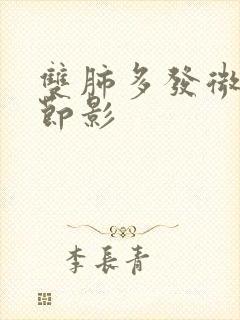 雙肺多發微
節影
李長青